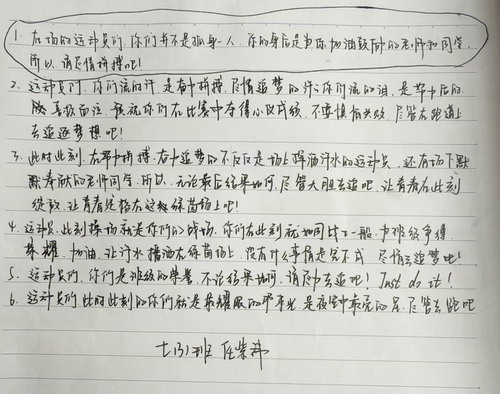 1. 在场的运动员们,你们并不是孤身一人,你的身后是为你加油鼓劲的老师和同学,
所以,请尽情拼搏吧!
2. 运动员们,你们流的汗,是奋力拼搏,尽情追梦的汗;你们流的泪,是努力后的
喜极而泣,祝你们在比赛中夺得心仪成绩,不要惧怕失败,尽管在跑道上
去追逐梦想吧!
3. 此时此刻,在努力拼搏,奋力追梦的不仅仅是场上挥洒汗水的运动员,还有场下默
默奉献的老师同学,所以,无论最后结果如何,尽管大胆去追吧,让青春在此刻
绽放,让青春绽放在这绿茵场上吧!
4. 运动员,此刻操场就是你们的战场,你们在此刻就如同战士一般,为班级争得
荣耀,加油,让汗水挥洒在绿茵场上,没有什么事情是完不成,尽情去追梦吧!
5. 运动员们,你们是班级的荣誉,不论结果如何,请尽力去追吧! Just do it!
6. 运动员们,此时此刻的你们就是最耀眼的,是夜空中最亮的星,尽管去跑吧
七(3)班 任紫祎